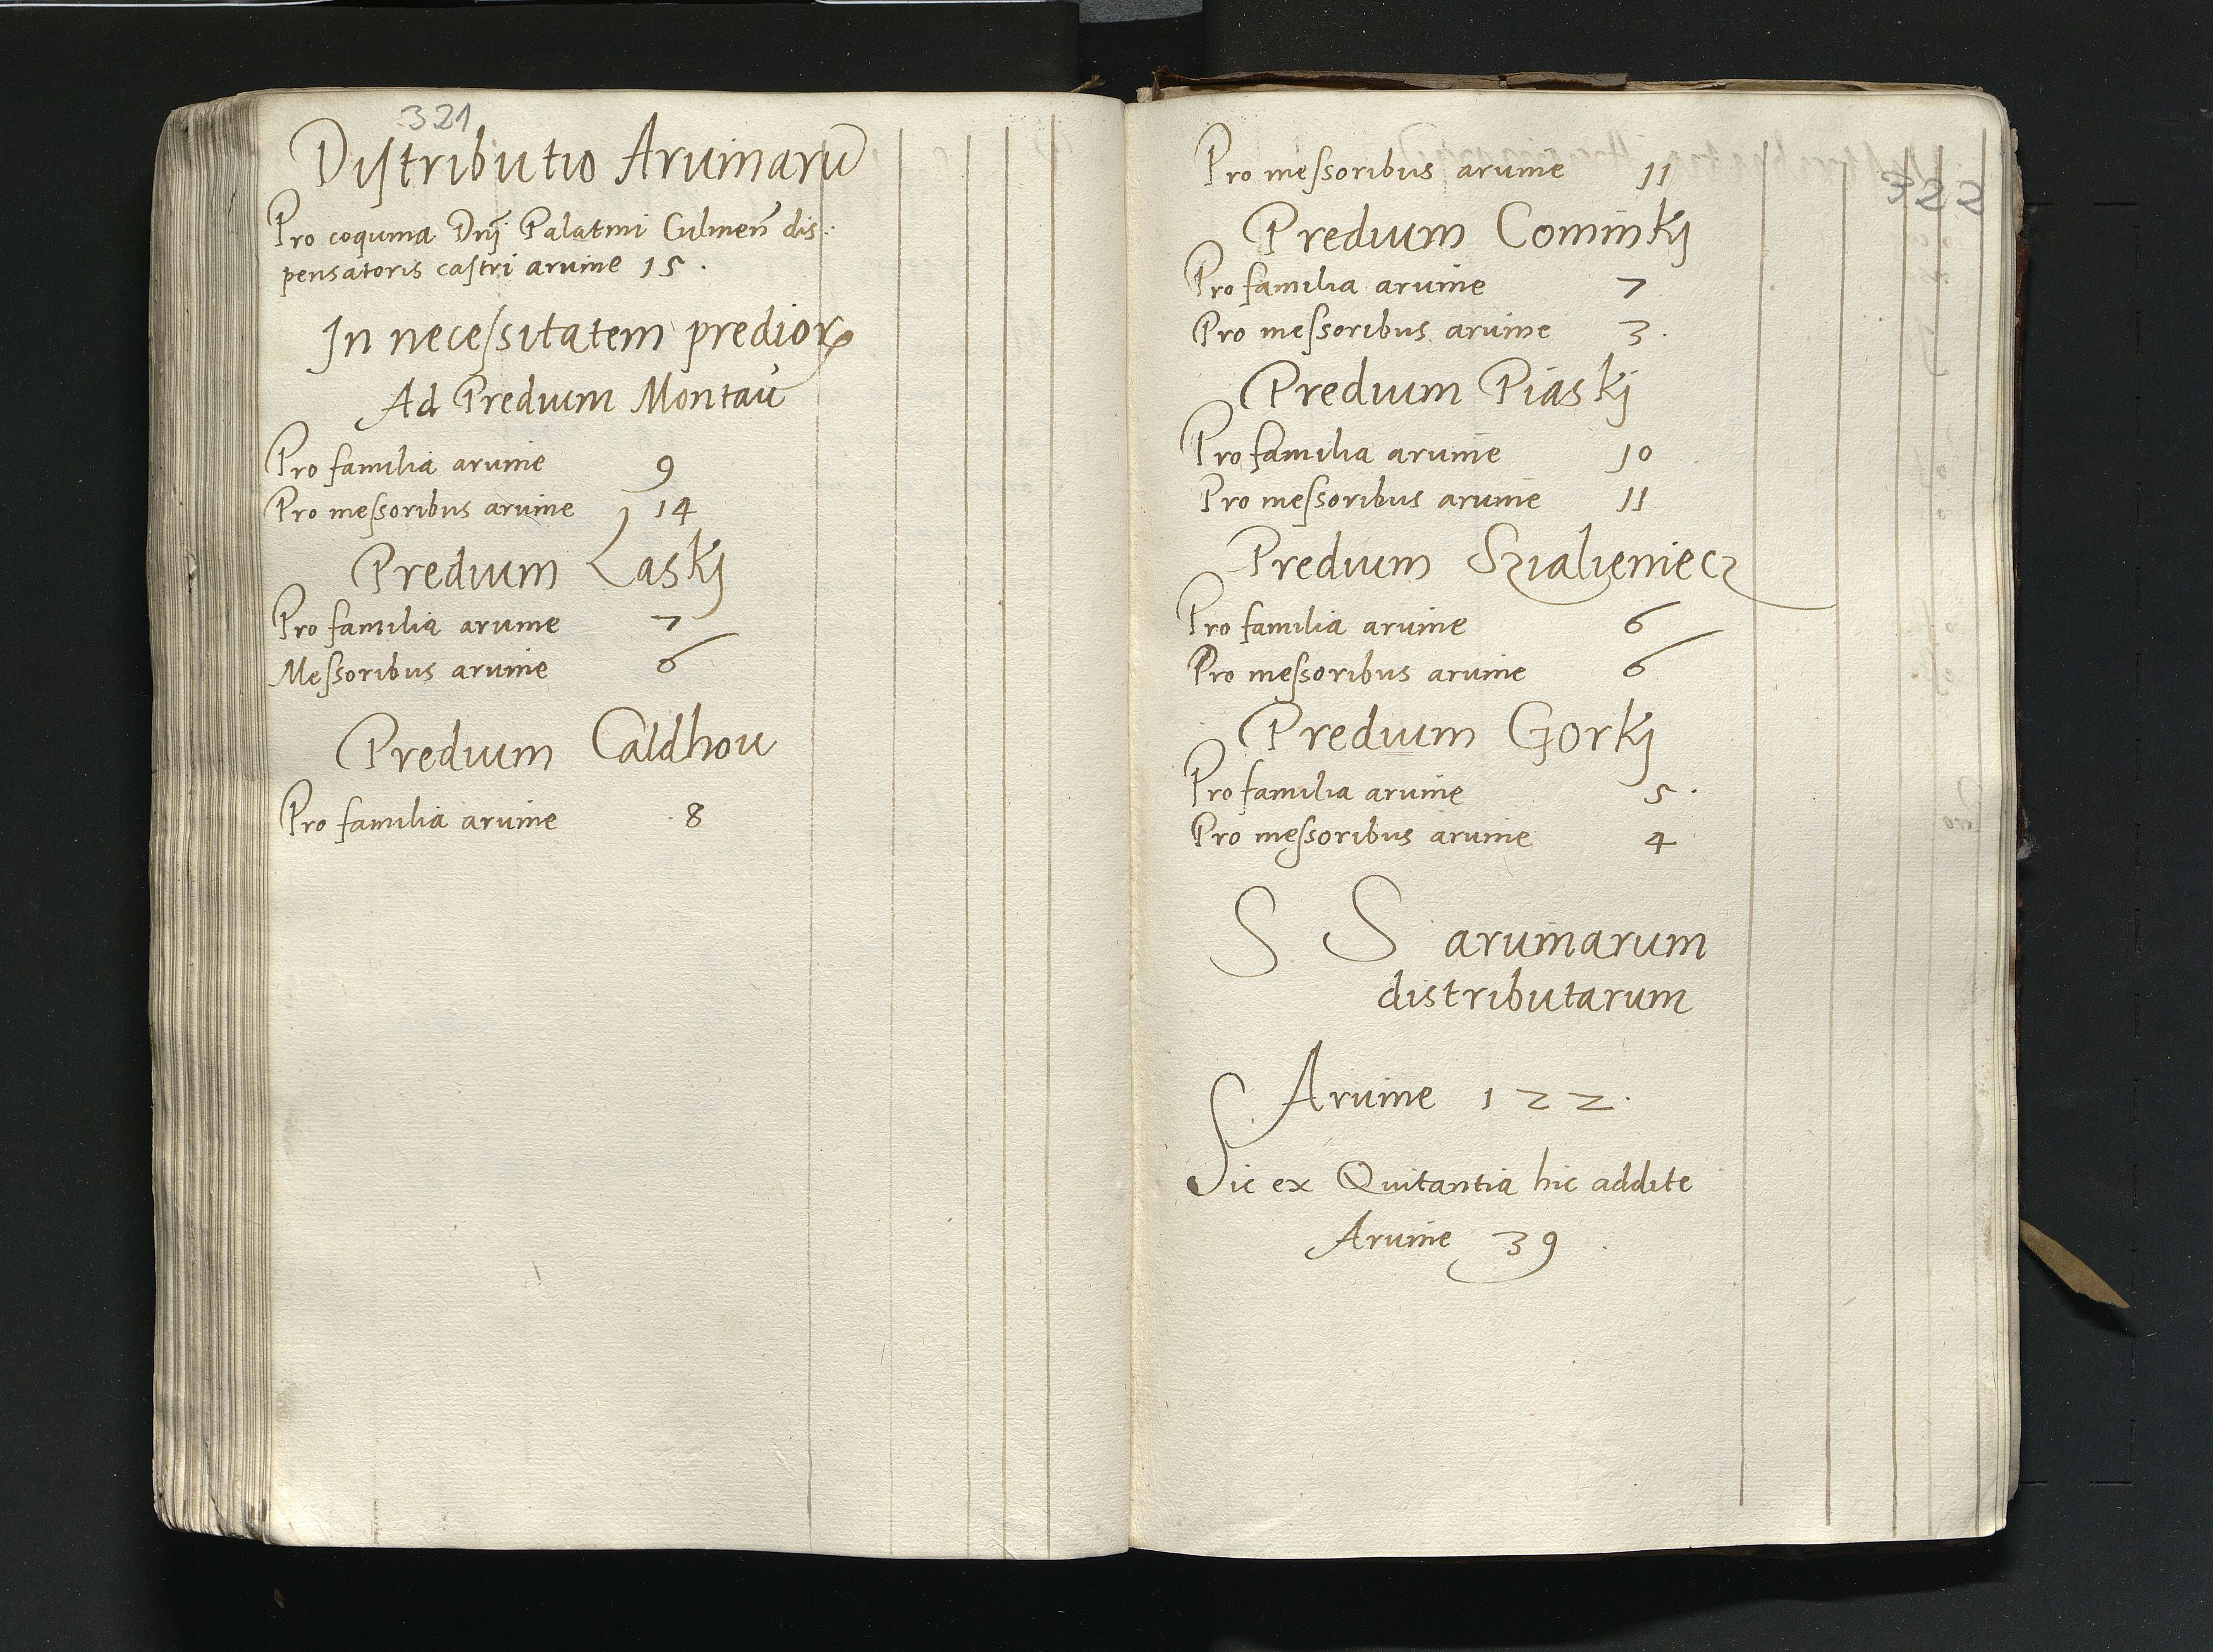 321
Distributio Arvinarū
Pro coquina Dnj Palatini Culmen̄ dis-
pensatoris castri arvine 15.
In necessitatem predioꝝ
Ad Predium Montau
Pro familia arvine 9
Pro messoribus arvine 14
Predium Laskj
Pro familia arvine 7
Messoribus arvine 6
Predium Caldhou
Pro familia arvine 8
322
Pro messoribus arvine 11
Predium Cominkj
Pro familia arvine 7
Pro messoribus arvine 3.
Predium Piaskj
Pro familia arvine 10
Pro messoribus arvine 11
Predium Szialieniecz
Pro familia arvine 6
Pro messoribus arvine 6
Predium Gorkj
Pro familia arvine 5.
Pro messoribus arvine 4
S S arvinarum
distributarum
Arvine 122.
Sic ex Quitantia hic addite
Arvine 39